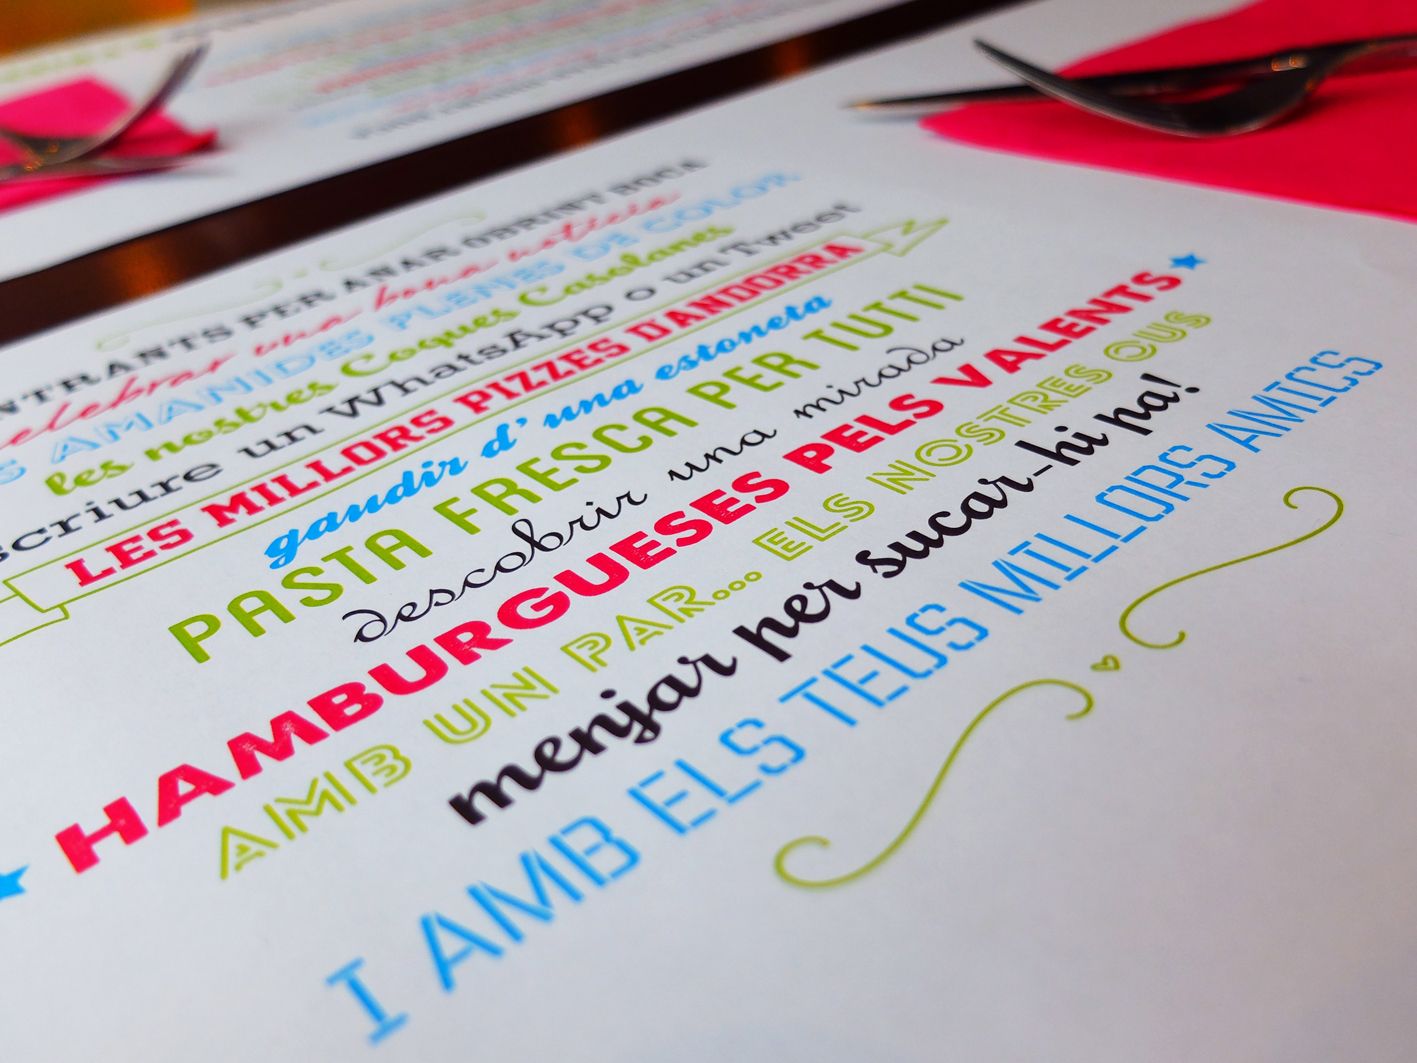 ENTRANTS PER ANAR OBRINT BOCA
celebrar una bona notícia
AMANIDES PLENES DE COLOR
les nostres Coques Casolanes
escriure un WhatsApp o un Tweet
LES MILLORS PIZZES D'ANDORRA
gaudir d'una estoneta
PASTA FRESCA PER TUTTI
descobrir una mirada
HAMBURGUESES PELS VALENTS
AMB UN PAR... ELS NOSTRES OUS
menjar per sucar-hi pa!
I AMB ELS TEUS MILLORS AMICS